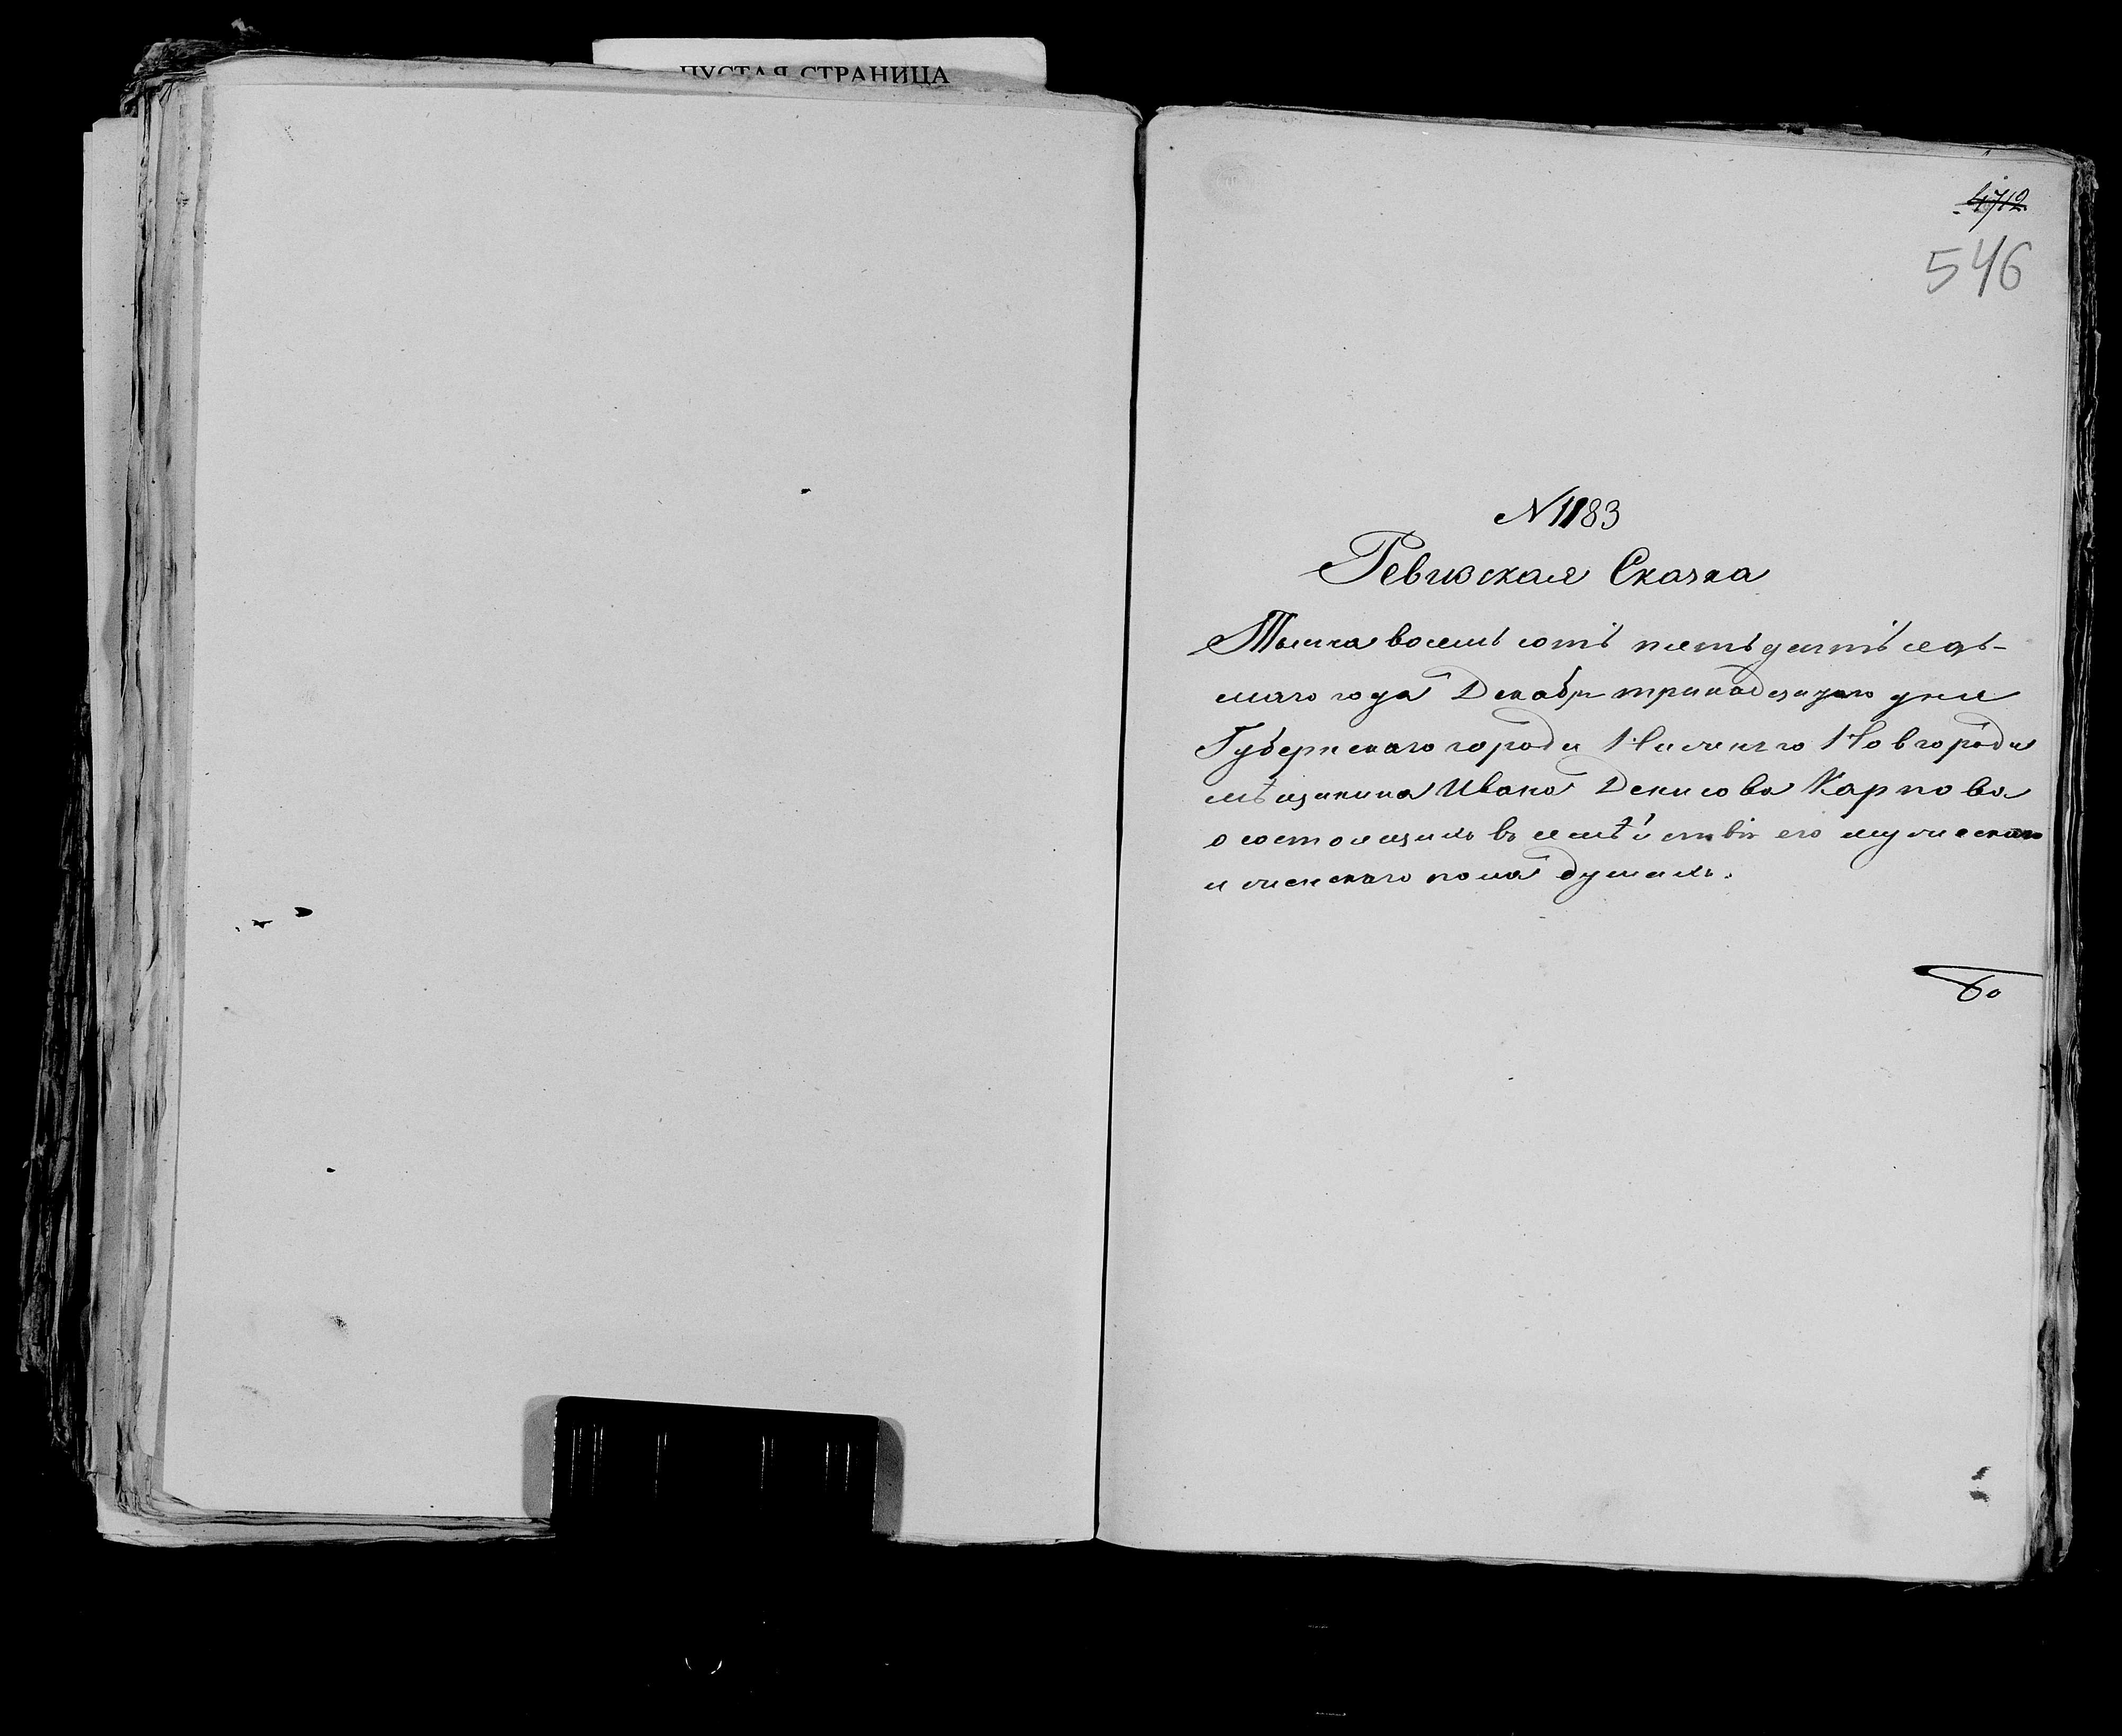 ПУСТАЯ СТРАНИЦА
4712
546
N 1183
Ревизская Сказка
Тысяча восемь сотъ пятьдесятъ седь-
маго года Декабря тринадцатаго дня
Губернскаго города Нижняго Новгорода
мѣщанина Ивана Денисова Карпова
о состоящихъ въ семѣйствѣ его мужескаго
и женскаго пола душахъ.